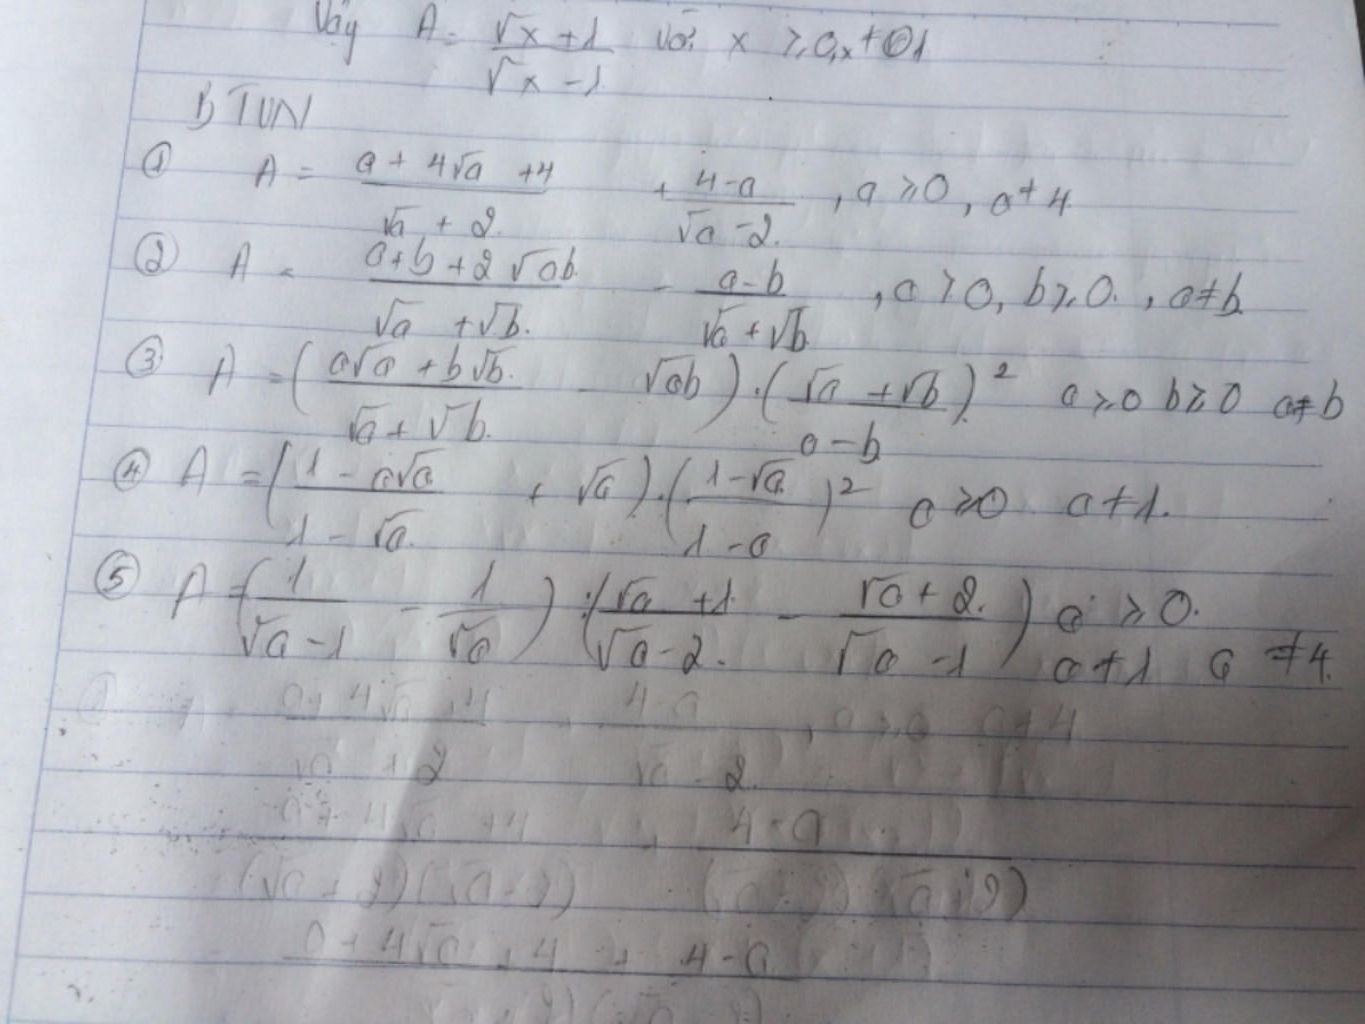 Vậy A = (√x + 1)/(√x - 1) với x ≥ 0, x ≠ 1
BTVN
① A = (a + 4√a + 4)/(√a + 2) + (4 - a)/(√a - 2), a ≥ 0, a ≠ 4
② A = (a + b + 2√ab)/(√a + √b) - (a - b)/(√a + √b), a ≥ 0, b ≥ 0, a ≠ b
③ A = ((a√a + b√b)/(√a + √b) - √ab).((√a + √b)/(a - b))² a ≥ 0 b ≥ 0 a ≠ b
④ A = ((1 - a√a)/(1 - √a) + √a).((1 - √a)/(1 - a))² a ≥ 0 a ≠ 1.
⑤ A = (1/(√a - 1) - 1/√a) : ((√a + 1)/(√a - 2) - (√a + 2)/(√a - 1)) a ≥ 0.
a ≠ 1 a ≠ 4.
(a + 4√a + 4)/(√a + 2) (4 - a)/(√a - 2)
a + 4√a + 4 + 4 - a